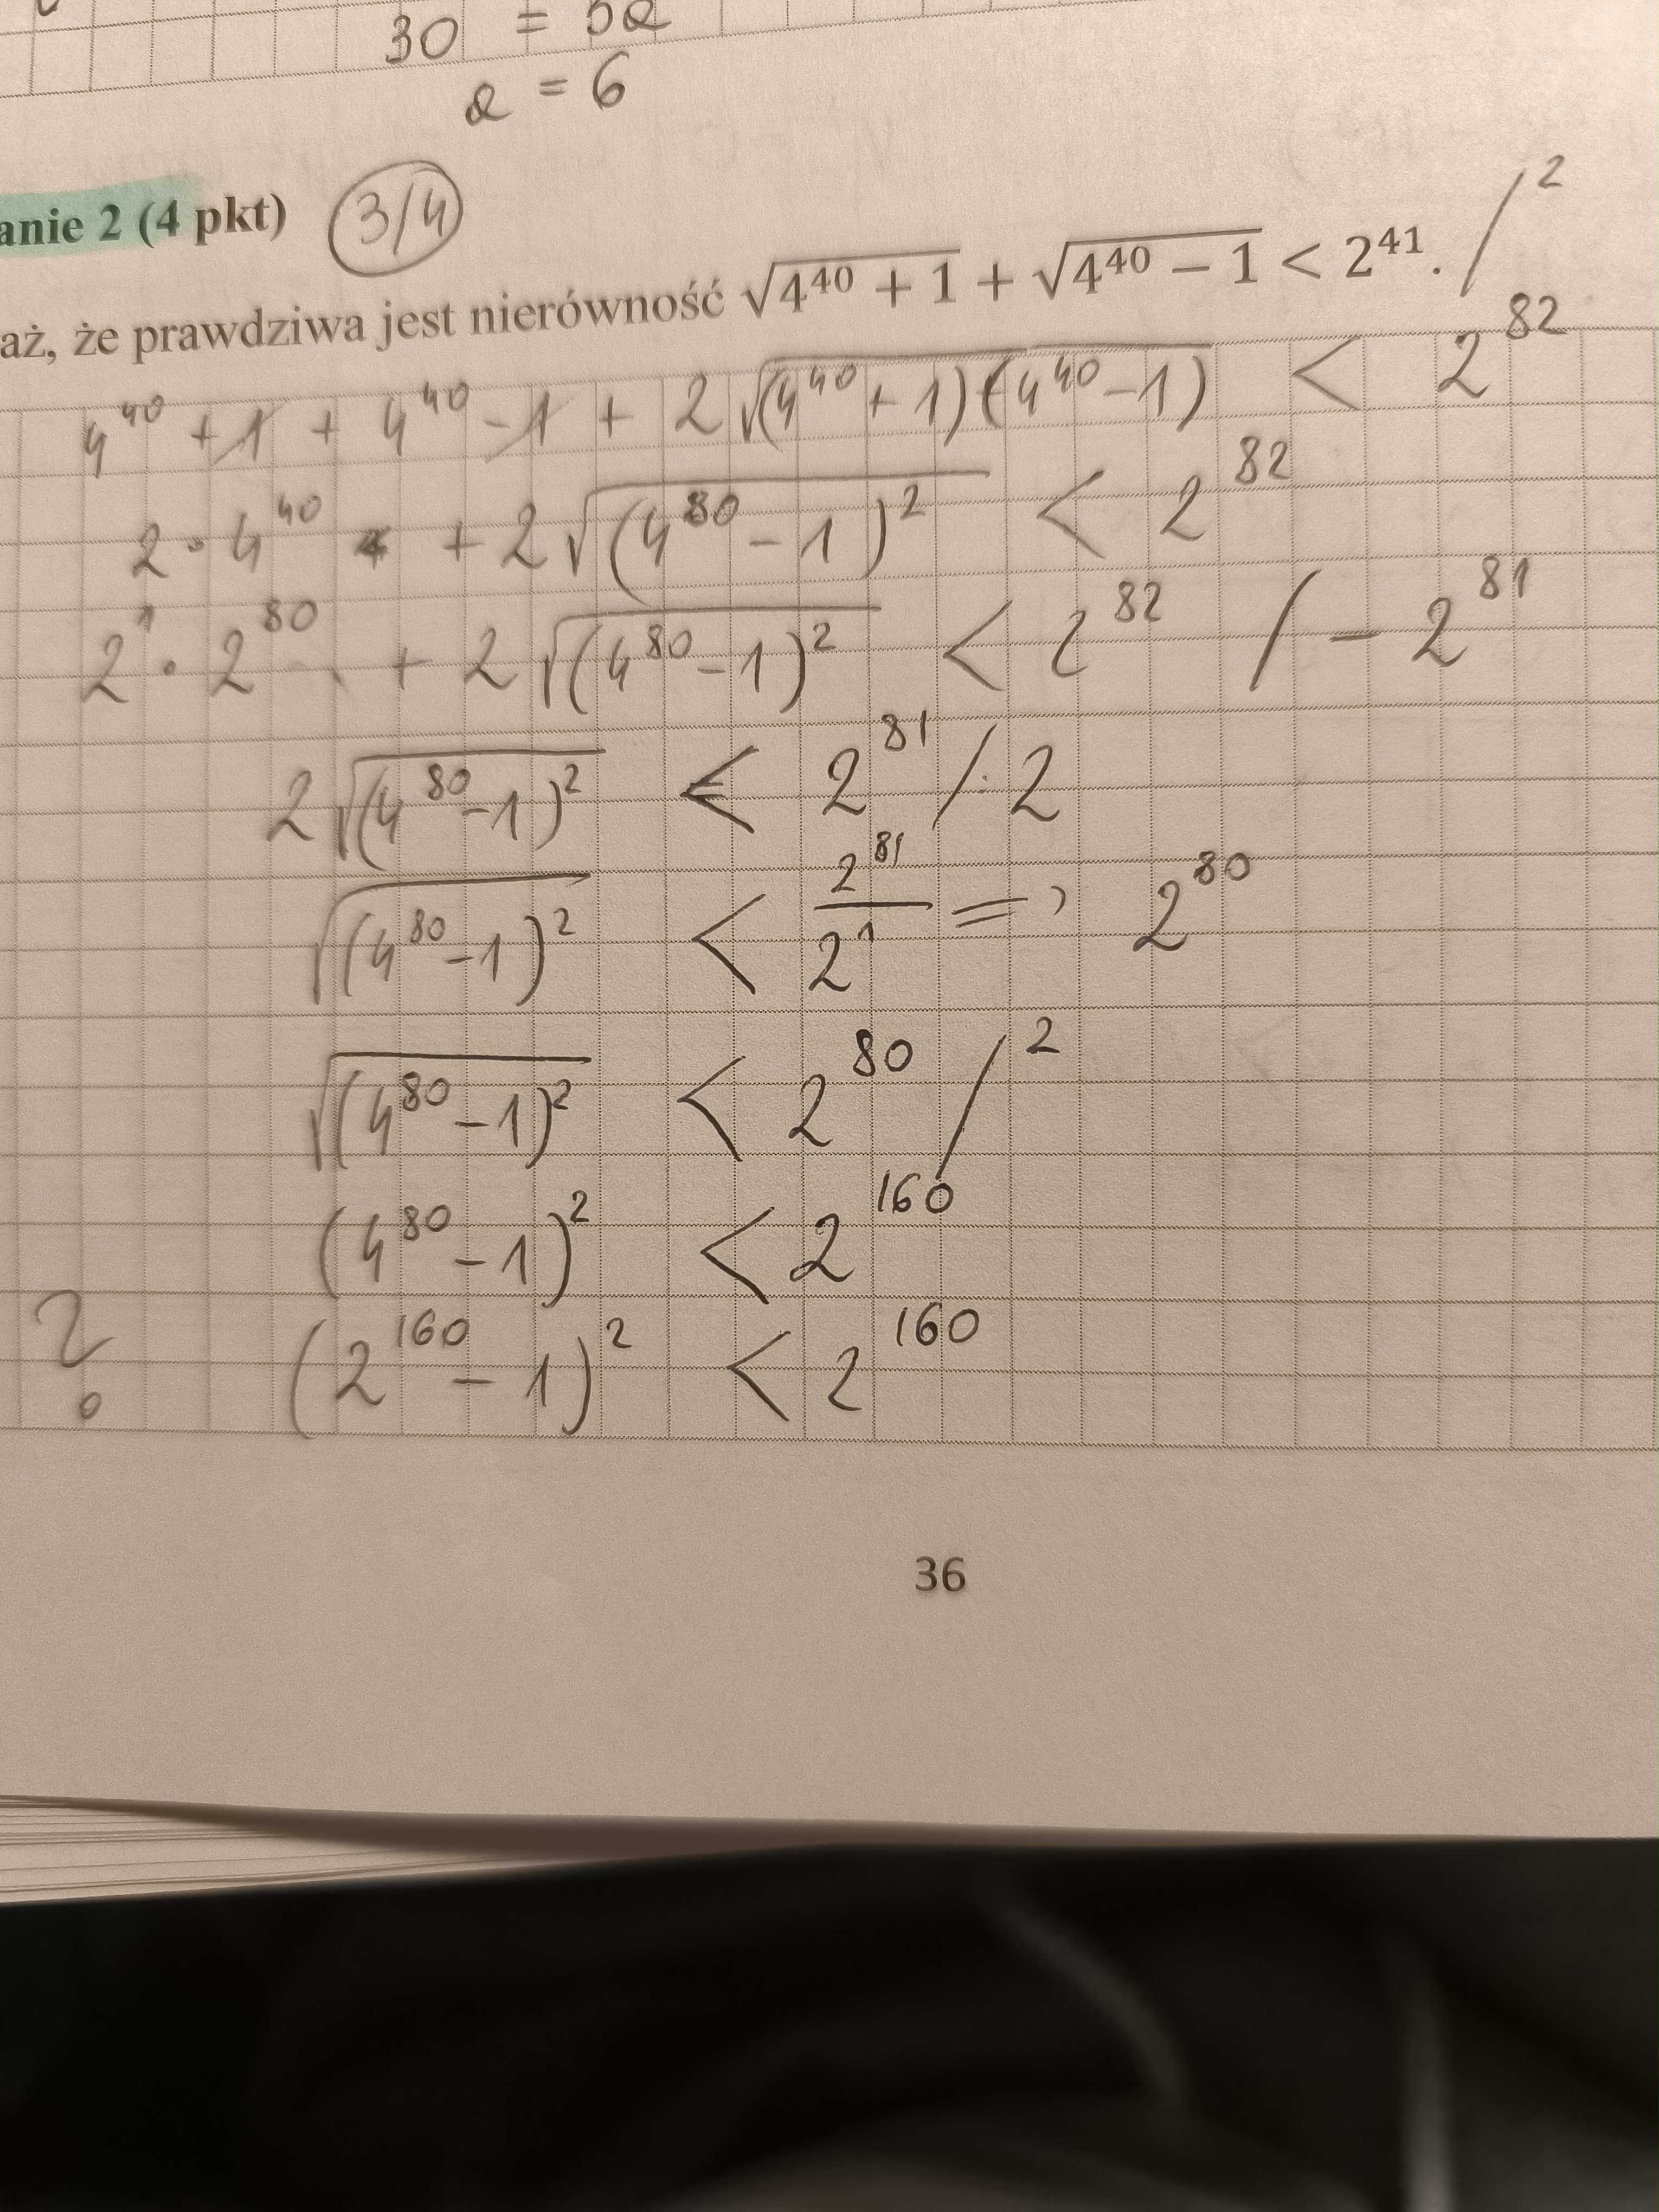 30 = 5a
a = 6
anie 2 (4 pkt) 3/4
aż, że prawdziwa jest nierówność √(4⁴⁰ + 1) + √(4⁴⁰ − 1) < 2⁴¹. /²
4⁴⁰ + 1 + 4⁴⁰ − 1 + 2√((4⁴⁰ + 1)(4⁴⁰ − 1)) < 2⁸²
2 · 4⁴⁰ + 2√((4⁸⁰ − 1)²) < 2⁸²
2¹ · 2⁸⁰ + 2√((4⁸⁰ − 1)²) < 2⁸² / − 2⁸¹
2√((4⁸⁰ − 1)²) < 2⁸¹ / : 2
√((4⁸⁰ − 1)²) < 2⁸¹/2¹ => 2⁸⁰
√((4⁸⁰ − 1)²) < 2⁸⁰ /²
(4⁸⁰ − 1)² < 2¹⁶⁰
? (2¹⁶⁰ − 1)² < 2¹⁶⁰
36